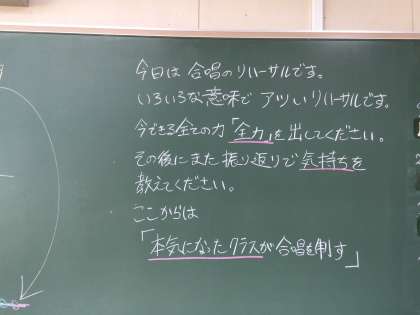 今日は合唱のリハーサルです。
いろいろな意味でアツいリハーサルです。
今できる全ての力「全力」を出してください。
その後にまた振り返りで気持ちを
教えてください。
ここからは
「本気になったクラスが合唱を制す」